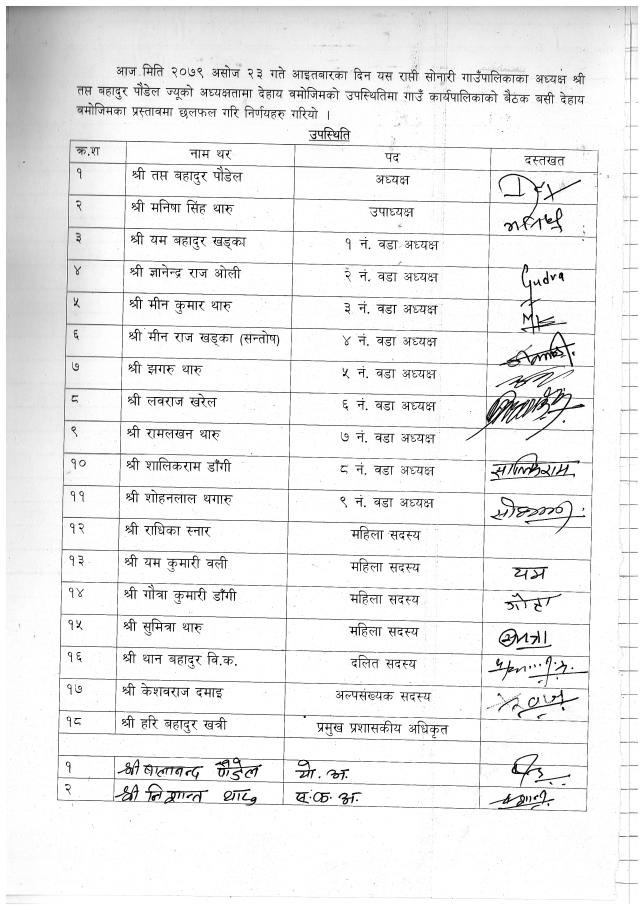 आज मिति २०७९ असोज २३ गते आइतबारका दिन यस राप्ती सोनारी गाउँपालिकाका अध्यक्ष श्री
तप्त बहादुर पौडेल ज्यूको अध्यक्षतामा देहाय बमोजिमको उपस्थितिमा गाउँ कार्यपालिकाको बैठक बसी देहाय
बमोजिमका प्रस्तावमा छलफल गरि निर्णयहरु गरियो ।
उपस्थिति
क्र.श नाम थर पद दस्तखत
१ श्री तप्त बहादुर पौडेल अध्यक्ष
२ श्री मनिषा सिंह थारु उपाध्यक्ष
३ श्री यम बहादुर खड्का १ नं. वडा अध्यक्ष
४ श्री ज्ञानेन्द्र राज ओली २ नं. वडा अध्यक्ष
५ श्री मीन कुमार थारु ३ नं. वडा अध्यक्ष
६ श्री मीन राज खड्का (सन्तोष) ४ नं. वडा अध्यक्ष
७ श्री झगरु थारु ५ नं. वडा अध्यक्ष
८ श्री लवराज खरेल ६ नं. वडा अध्यक्ष
९ श्री रामलखन थारु ७ नं. वडा अध्यक्ष
१० श्री शालिकराम डाँगी ८ नं. वडा अध्यक्ष सालिकराम
११ श्री शोहनलाल थगारु ९ नं. वडा अध्यक्ष
१२ श्री राधिका स्नार महिला सदस्य
१३ श्री यम कुमारी वली महिला सदस्य यम
१४ श्री गौत्रा कुमारी डाँगी महिला सदस्य
१५ श्री सुमित्रा थारु महिला सदस्य
१६ श्री थान बहादुर वि.क. दलित सदस्य
१७ श्री केशवराज दमाइ अल्पसंख्यक सदस्य
१८ श्री हरि बहादुर खत्री प्रमुख प्रशासकीय अधिकृत
१ श्री बालानन्द पौडेल यो. अ.
२ श्री निशान्त थारु स.क. अ.